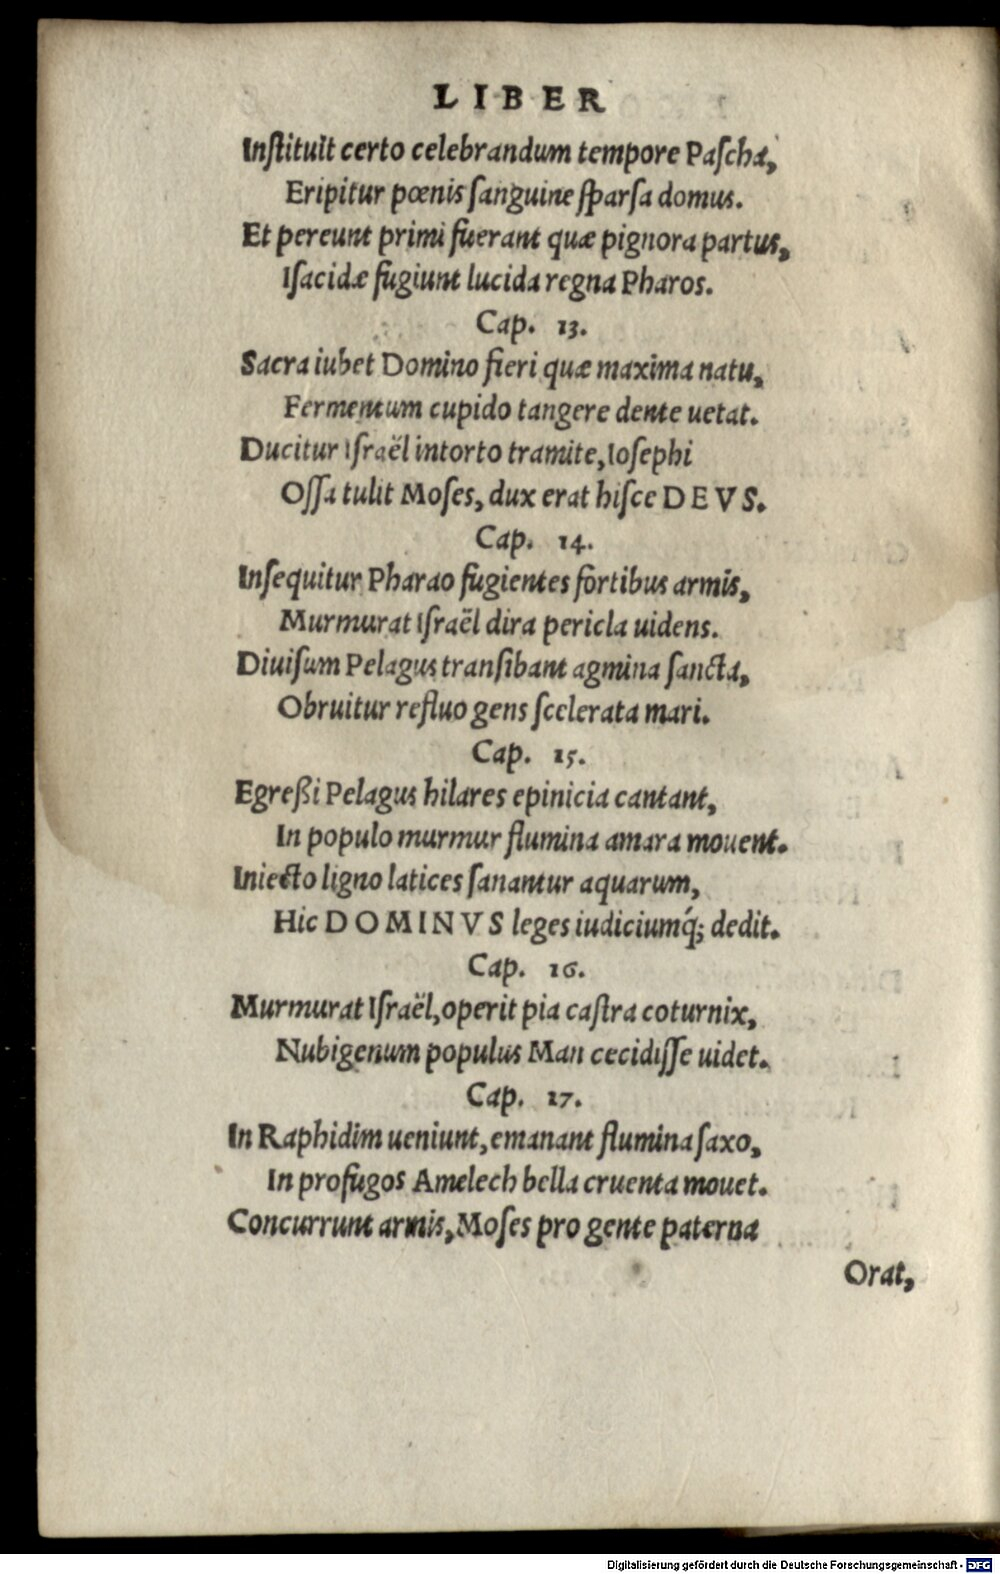 LIBER
Inſtituit certo celebrandum tempore Paſcha,
Eripitur pœnis ſanguine ſparſa domus.
Et pereunt primi fuerant quæ pignora partus,
Iſacidæ fugiunt lucida regna Pharos.
Cap. 13.
Sacra iubet Domino fieri quæ maxima natu,
Fermentum cupido tangere dente uetat.
Ducitur Iſraël intorto tramite, Ioſephi
Oſſa tulit Moſes, dux erat hiſce DEVS.
Cap. 14.
Inſequitur Pharao fugientes fortibus armis,
Murmurat Iſraël dira pericla uidens.
Diuiſum Pelagus tranſibant agmina ſancta,
Obruitur refluo gens ſcelerata mari.
Cap. 15.
Egreßi Pelagus hilares epinicia cantant,
In populo murmur flumina amara mouent.
Iniecto ligno latices ſanantur aquarum,
Hic DOMINVS leges iudiciumq́; dedit.
Cap. 16.
Murmurat Iſraël, operit pia caſtra coturnix,
Nubigenum populus Man cecidiſſe uidet.
Cap. 17.
In Raphidim ueniunt, emanant flumina ſaxo,
In profugos Amelech bella cruenta mouet.
Concurrunt armis, Moſes pro gente paterna
Orat,
Digitalisierung gefördert durch die Deutsche Forschungsgemeinschaft - DFG